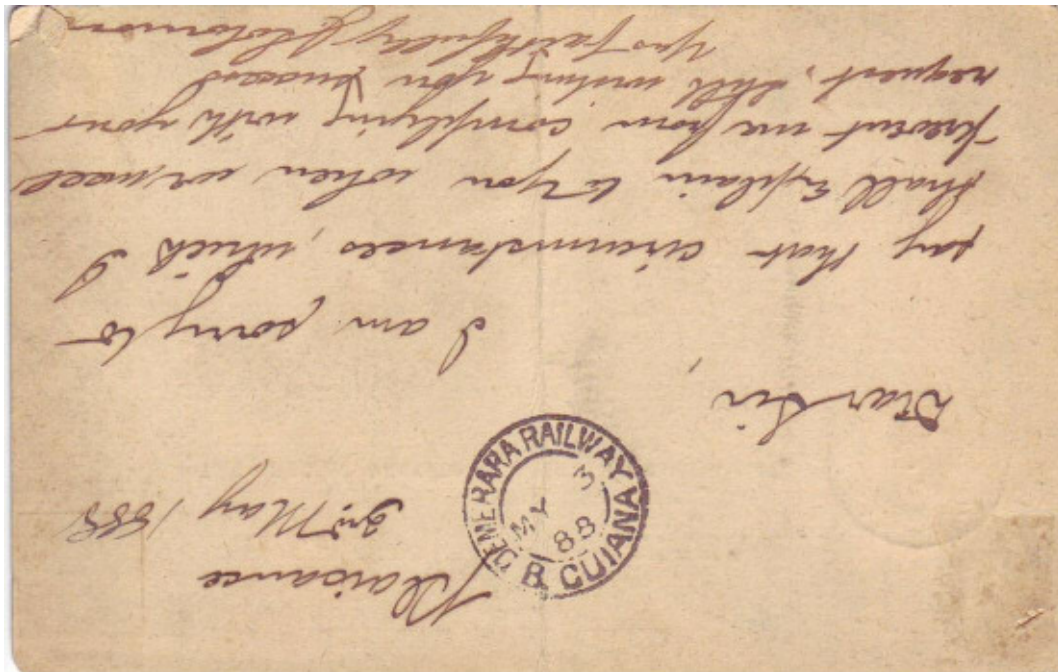 Plaisance
3rd May 1888
DEMERARA RAILWAY
MY 3
88
B. GUIANA
Dear Sir,
I am sorry to
say that circumstances, which I
shall Explain to you when we meet
prevent me from complying with your
request. Still wishing you success
Yrs faithfully